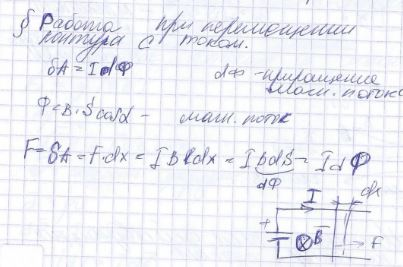 § Работа при перемощении
контура с током.
δA = I dФ dФ - приращение
магн. потока
Ф = B·S cosα - магн. поток
F = δA = F·dx = I B l dx = I B dS = I d Ф
dФ
I dx
+ B F